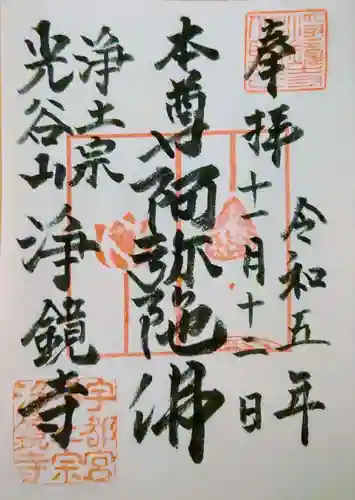 奉拝
令和五年
十一月十二日
本尊阿弥陀佛
浄土宗
光谷山
浄鏡寺
宇都宮